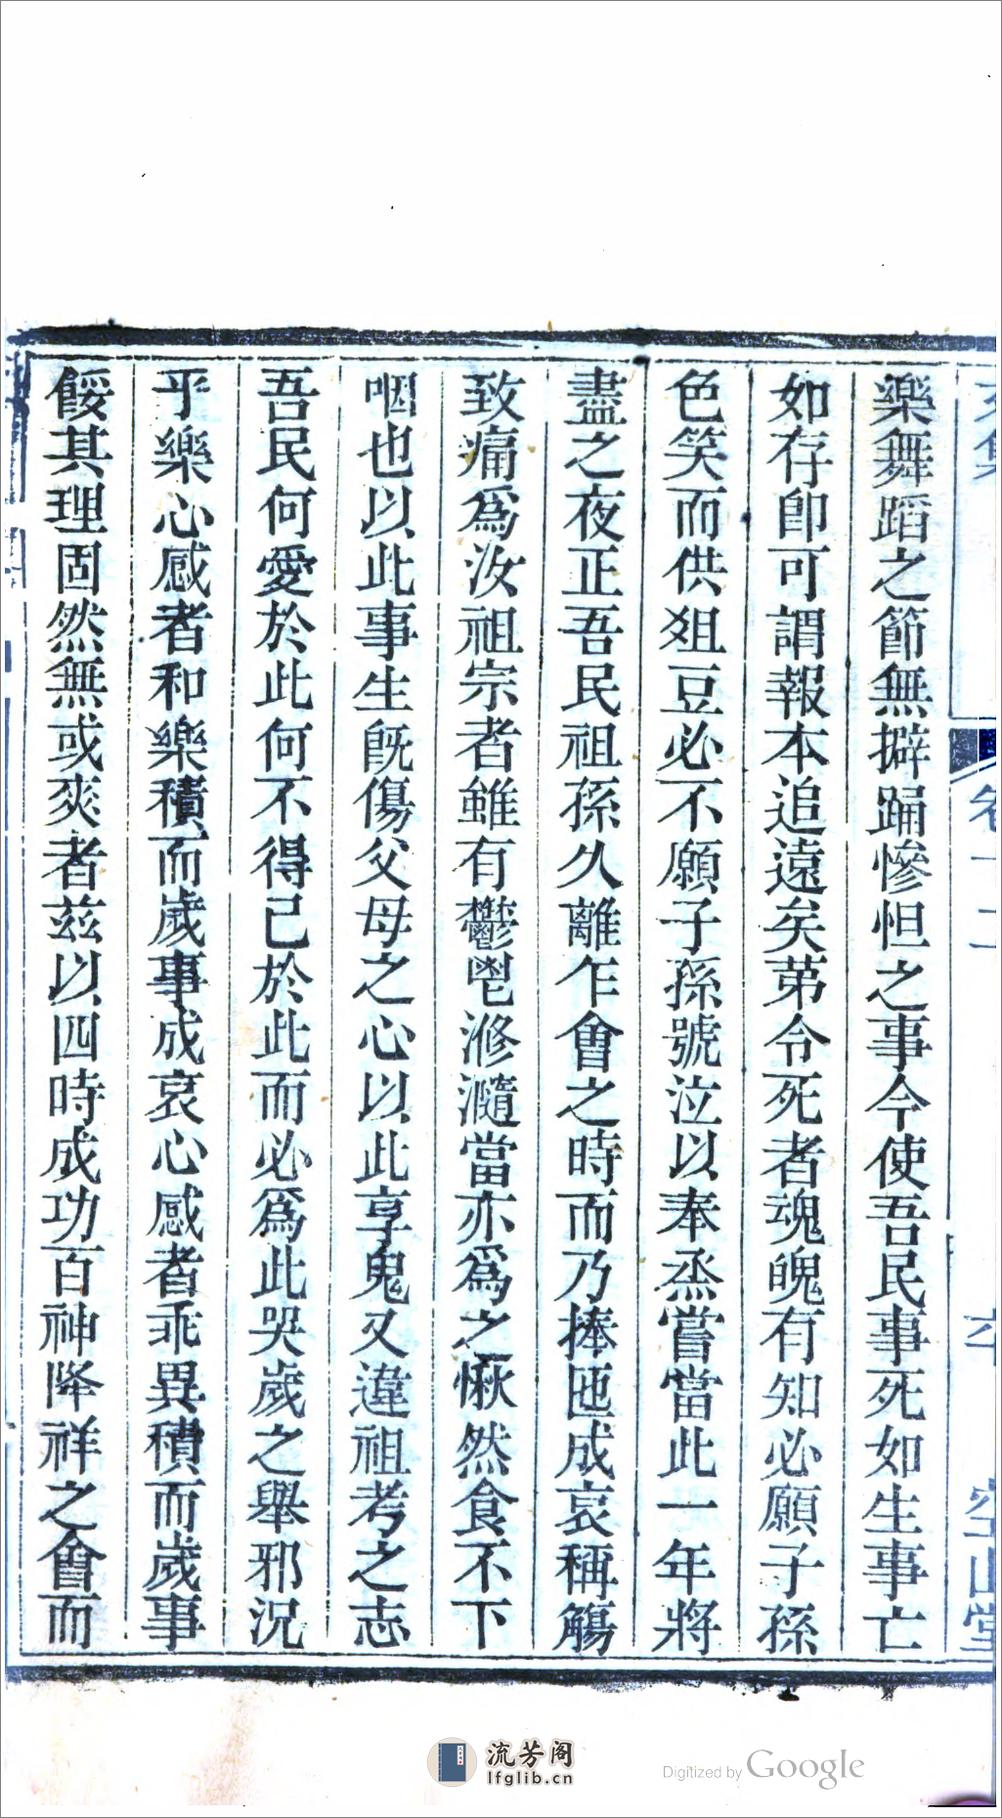 樂舞蹈之節無擗踊慘怛之事今使吾民事死如生事亡
如存卽可謂報本追遠矣苐令死者魂魄有知必願子孫
色笑而供俎豆必不願子孫號泣以奉烝嘗當此一年將
盡之夜正吾民祖孫久離乍會之時而乃捧匜成哀稱觴
致痛爲汝祖宗者雖有鬱鬯滫瀡當亦爲之愀然食不下
咽也以此事生旣傷父母之心以此享鬼又違祖考之志
吾民何愛於此何不得已於此而必爲此哭歲之舉邪况
乎樂心感者和樂積而歲事成哀心感者乖異積而歲事
餒其理固然無或爽者茲以四時成功百神降祥之會而
空山堂
流芳阁
lfglib.cn
Digitized by Google